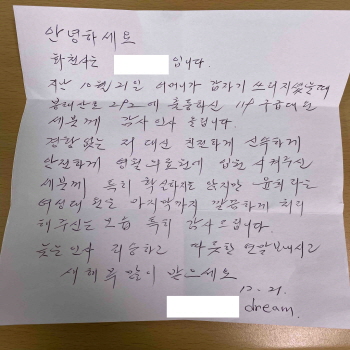 안녕하세요
화천사는 입니다.
지난 10월21일 어머니가 갑자기 쓰러지셨을때
출동하신 119 구급대원
세분께 감사인사 올립니다.
경황 없는 저 대신 친절하게 신속하게
안전하게 병원 의료원에 시켜주신
세분께 특히 확실하지는 않지만 윤희 라는
여성대원을 마지막까지 꼼꼼하게 처리
해주신는 모습 특히 감사드립니다.
늦은 인사 죄송하고 따뜻한 연말보내시고
새해 복 많이 받으세요
12. 21.
dream.